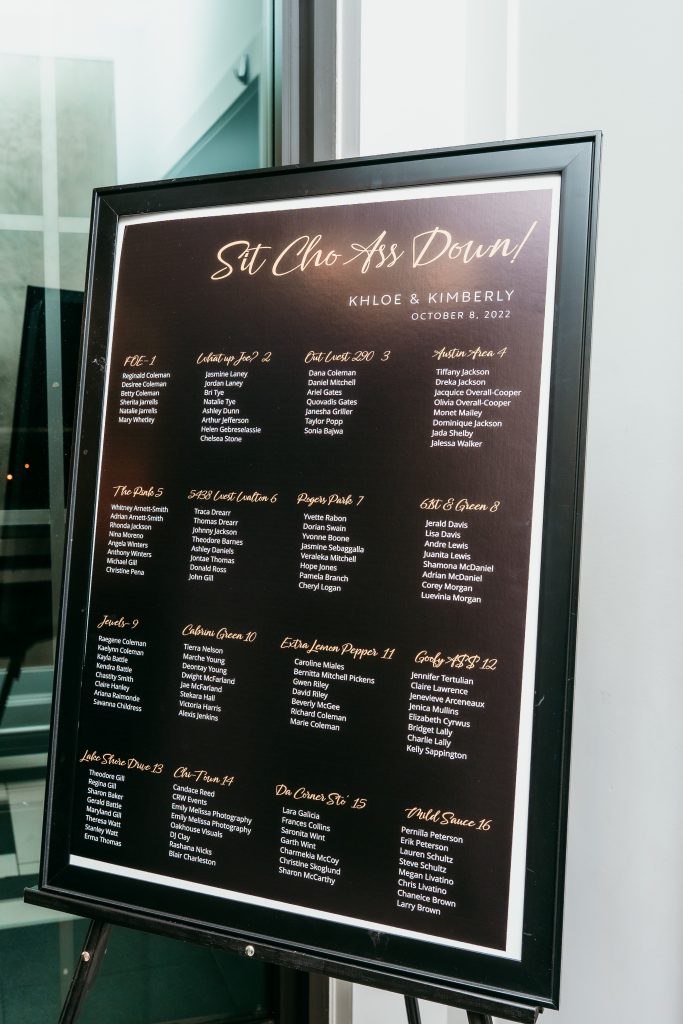 Sit Cho Ass Down!
KHLOE & KIMBERLY
OCTOBER 8, 2022
FOE- 1
Reginald Coleman
Desiree Coleman
Betty Coleman
Sherita Jarrells
Natalie Jarrells
Mary Whetley
What up Joe? 2
Jasmine Laney
Jordan Laney
Bri Tye
Natalie Tye
Ashley Dunn
Arthur Jefferson
Helen Gebreselassie
Chelsea Stone
Out West 290 3
Dana Coleman
Daniel Mitchell
Ariel Gates
Quovadis Gates
Janesha Griller
Taylor Popp
Sonia Bajwa
Austin Area 4
Tiffany Jackson
Dreka Jackson
Jacquice Overall-Cooper
Olivia Overall-Cooper
Monet Mailey
Dominique Jackson
Jada Shelby
Jalessa Walker
The Pink 5
Whitney Arnett-Smith
Adrian Arnett-Smith
Rhonda Jackson
Nina Moreno
Angela Winters
Anthony Winters
Michael Gill
Christine Pena
5438 West Walton 6
Traca Drearr
Thomas Drearr
Johnny Jackson
Theodore Barnes
Ashley Daniels
Jontae Thomas
Donald Ross
John Gill
Rogers Park 7
Yvette Rabon
Dorian Swain
Yvonne Boone
Jasmine Sebaggalla
Veraleka Mitchell
Hope Jones
Pamela Branch
Cheryl Logan
61st & Green 8
Jerald Davis
Lisa Davis
Andre Lewis
Juanita Lewis
Shamona McDaniel
Adrian McDaniel
Corey Morgan
Luevinia Morgan
Jewels- 9
Raegene Coleman
Kaelynn Coleman
Kayla Battle
Kendra Battle
Chastity Smith
Claire Hanley
Ariana Raimonde
Savanna Childress
Cabrini Green 10
Tierra Nelson
Marche Young
Deontay Young
Dwight McFarland
Jae McFarland
Stekara Hall
Victoria Harris
Alexis Jenkins
Extra Lemon Pepper 11
Caroline Miales
Bernitta Mitchell Pickens
Gwen Riley
David Riley
Beverly McGee
Richard Coleman
Marie Coleman
Goofy A$$ 12
Jennifer Tertulian
Claire Lawrence
Jenevieve Arceneaux
Jenica Mullins
Elizabeth Cyrwus
Bridget Lally
Charlie Lally
Kelly Sappington
Lake Shore Drive 13
Theodore Gill
Regina Gill
Sharon Baker
Gerald Battle
Maryland Gill
Theresa Watt
Stanley Watt
Erma Thomas
Chi-Town 14
Candace Reed
CRW Events
Emily Melissa Photography
Emily Melissa Photography
Oakhouse Visuals
DJ Clay
Rashana Nicks
Blair Charleston
Da Corner Sto' 15
Lara Galicia
Frances Collins
Saronita Wint
Garth Wint
Charmekia McCoy
Christine Skoglund
Sharon McCarthy
Mild Sauce 16
Pernilla Peterson
Erik Peterson
Lauren Schultz
Steve Schultz
Megan Livatino
Chris Livatino
Chaneice Brown
Larry Brown